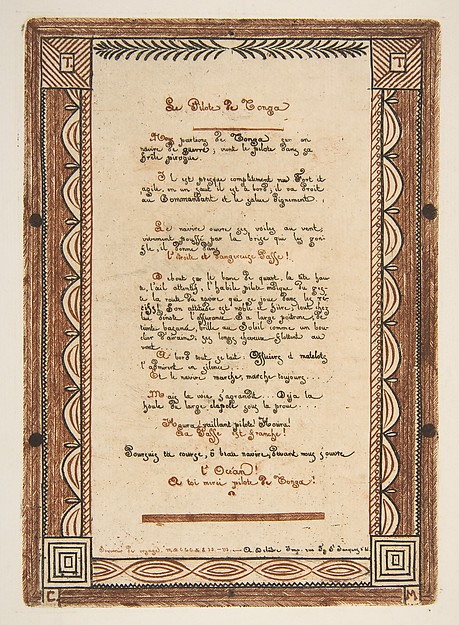 T T
Le Pilote de Tonga
Nous partions de Tonga sur un
navire de guerre; vint le pilote dans sa
frêle pirogue.
Il est presque complètement nu. Fort et
agile, en un saut il est à bord; il va droit
au Commandant et le salue dignement.
Le navire ouvre ses voiles au vent;
vivement poussé par la brise qui les gon-
fle, il donne dans
l'étroite et Dangereuse Passe!
Debout sur le banc de quart, la tête hau-
te, l'œil attentif, l'habile pilote indique du ges-
te la route du navire qui se joue dans les ré-
cifs. Son attitude est noble et fière; tout chez
lui dénote l'assurance. Sa large poitrine, de
teinte basanée, brille au Soleil comme un bou-
clier d'airain; ses longs cheveux flottent au
vent.
A bord tout se tait. Officiers et matelots
l'admirent en silence...
Et le navire marche, marche toujours....
Mais la voie s'agrandit.. Déjà la
houle du large clapote sous la proue....
Houra! vaillant pilote! Houra!
La Passe Est franche!
Poursuis ta course, ô beau navire, Devant nous s'ouvre
l'Océan!
A toi merci pilote de Tonga!
Souvenir de voyage. A. Delâtre Imp. rue Fg St Jacques
C. M.